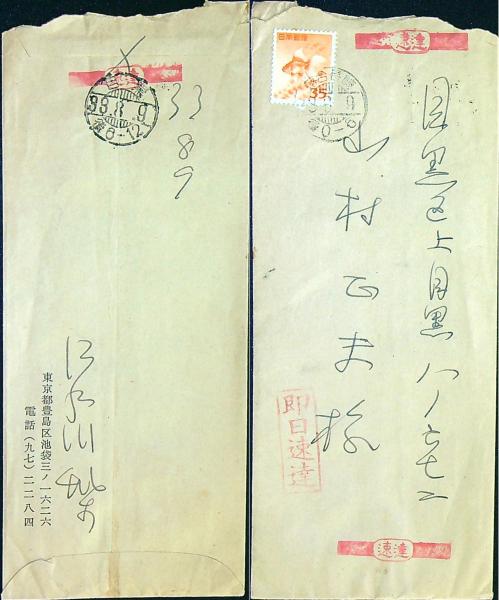 目黒区上目黒八ノ六七二
山村正夫様
日本郵便
35
即日速達
速達
33.8.9
33
8
9
江戸川乱歩
東京都豊島区池袋三ノ一六二六
電話（九七）二二八四